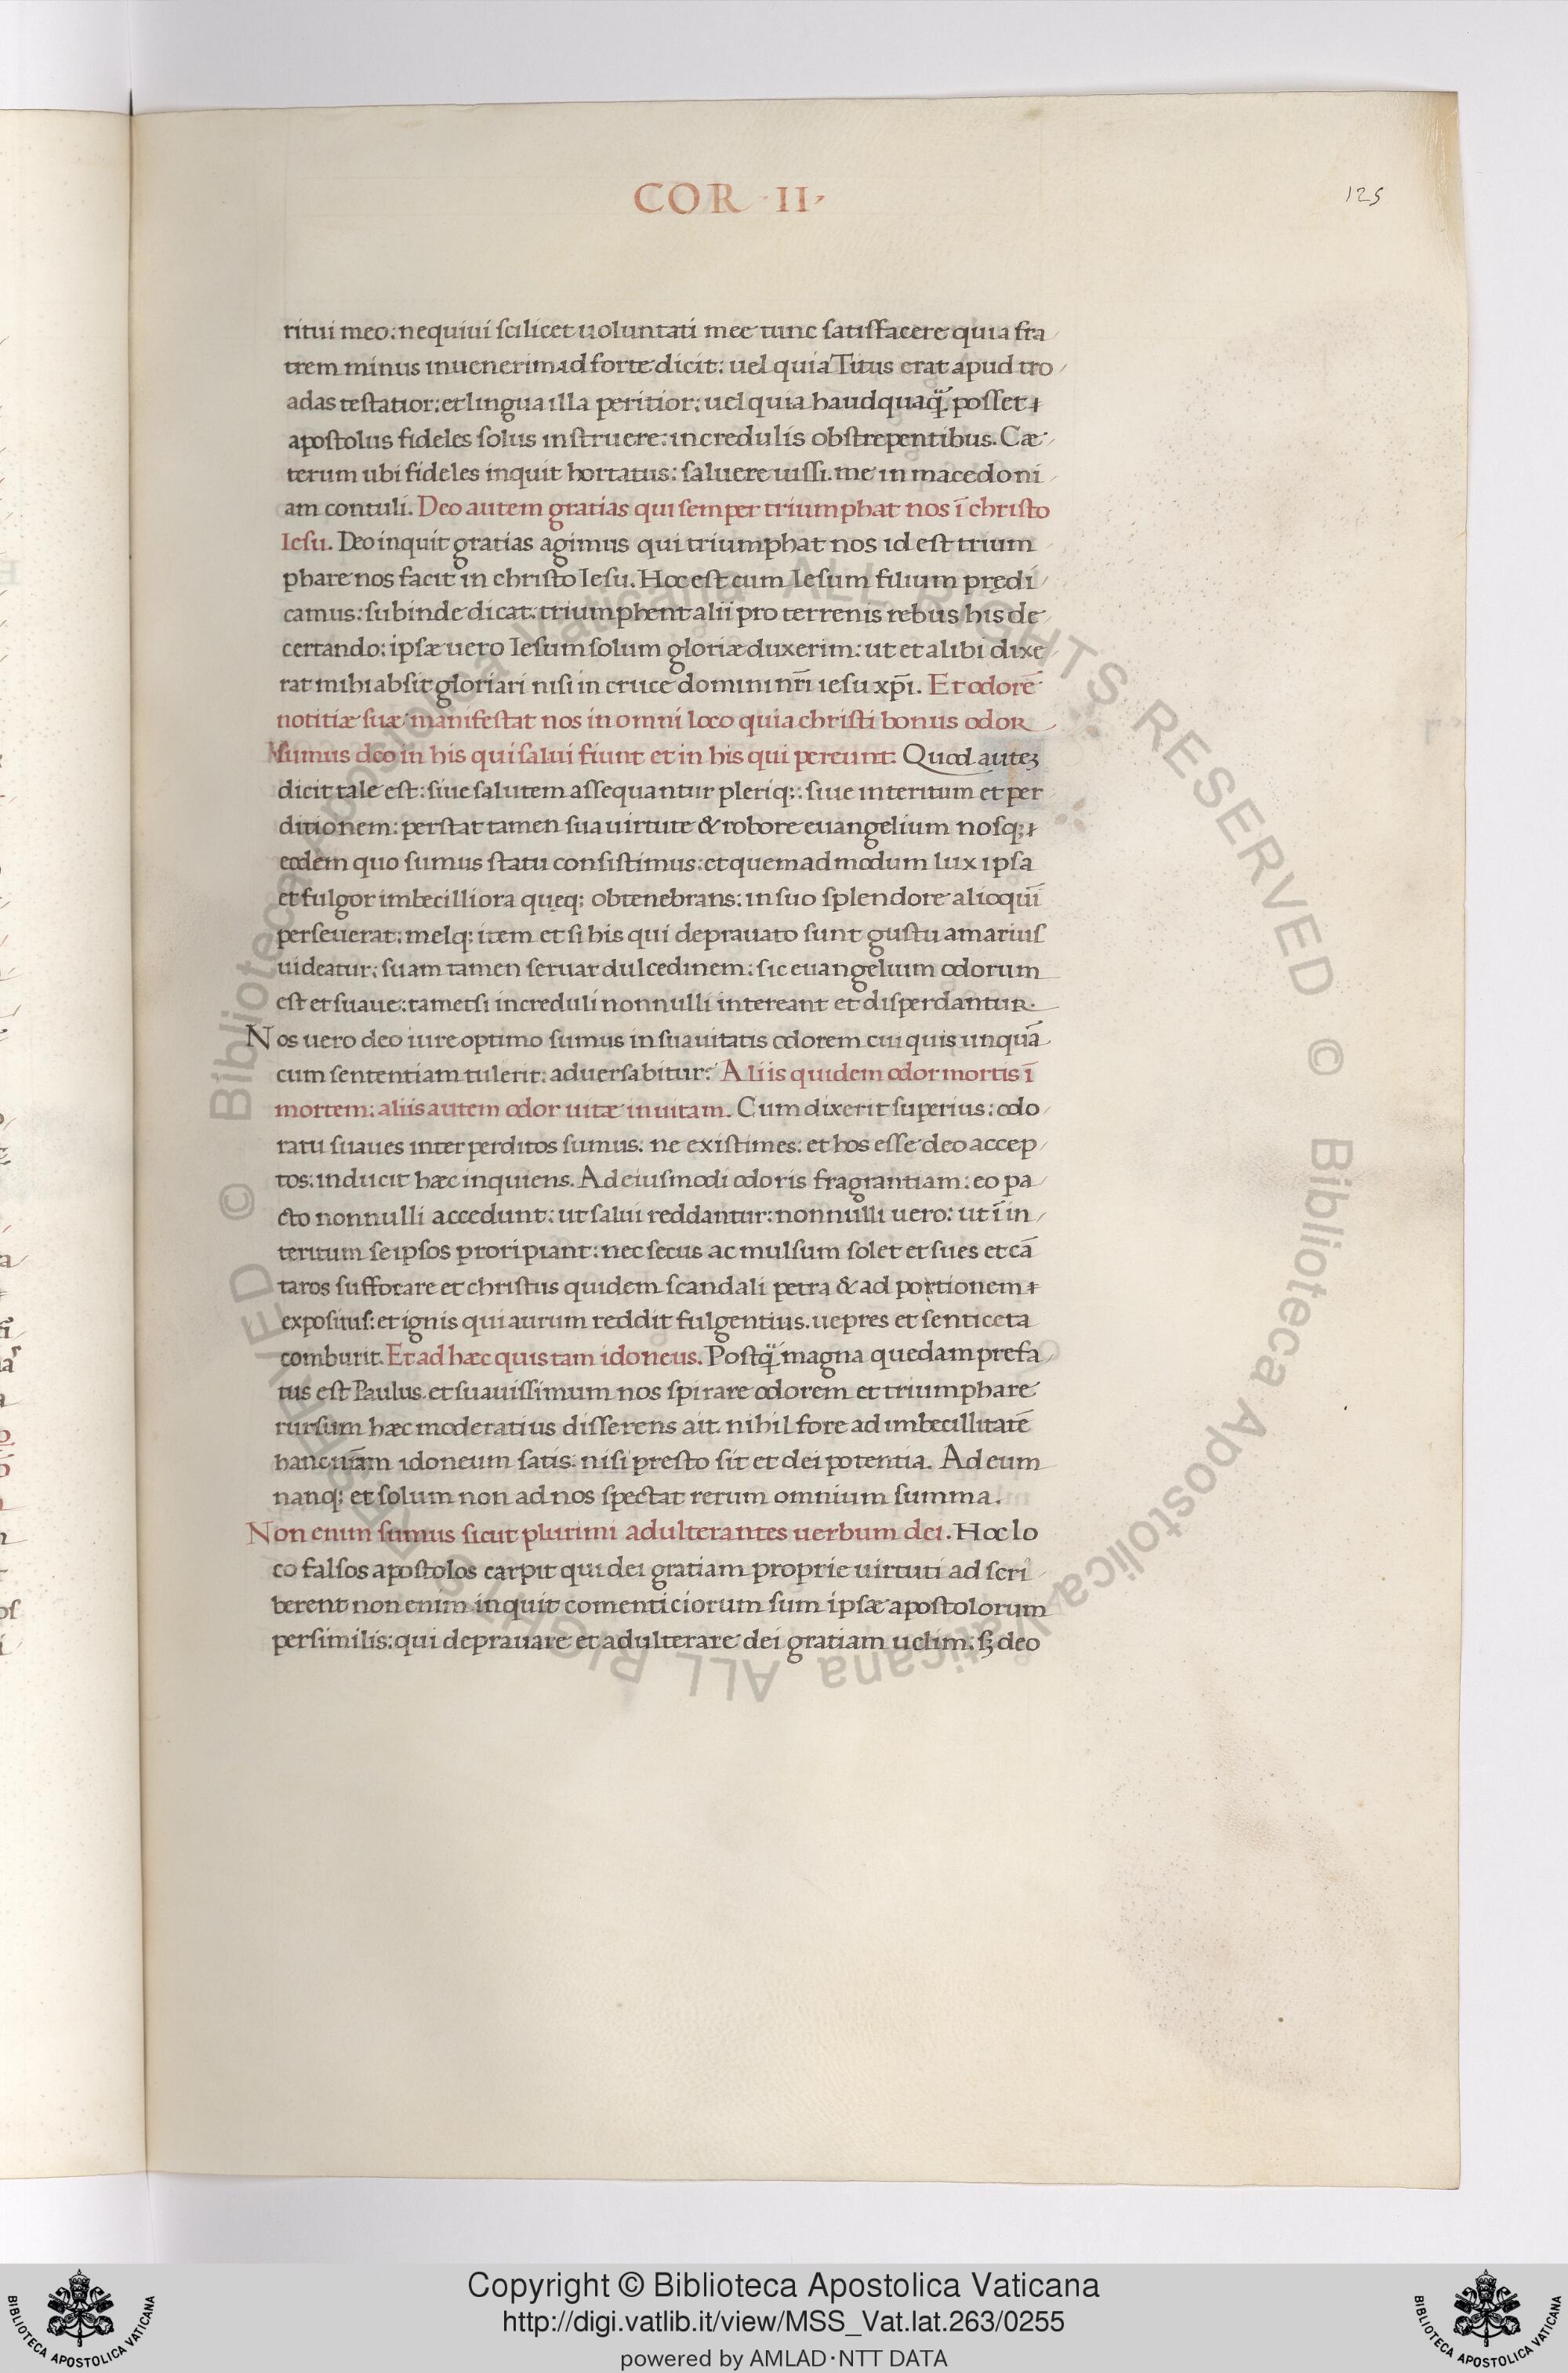 COR · II ·
125
ritui meo: nequiui scilicet uoluntati mee tunc satisfacere quia fra
trem minus inuenerim id forte dicit: uel quia Titus erat apud tro
adas testatior: et lingua illa peritior: uel quia haudquaq̃. posset
apostolus fideles solus instruere: incredulis obstrepentibus. Cæ
terum ubi fideles inquit hortatus: saluere iussi. me in macedoni
am contuli. Deo autem gratias qui semper triumphat nos ī christo
Iesu. Deo inquit gratias agimus qui triumphat nos id est trium
phare nos facit in christo Iesu. Hoc est cum Iesum filium prędi
camus: subinde dicat. triumphent alii pro terrenis rebus his de
certando: ipsæ uero Iesum solum gloriæ duxerim: ut et alibi dixe
rat mihi absit gloriari nisi in cruce domini nr̄i iesu xp̄i. Et odorē
notitiæ suæ manifestat nos in omni loco quia christi bonus odor
sumus deo in his qui salui fiunt et in his qui pereunt: Quod autez
dicit tale est: siue salutem assequantur pleriq;: siue interitum et per
ditionem: perstat tamen sua uirtute & robore euangelium nosq;
eodem quo sumus statu consistimus: et quemadmodum lux ipsa
et fulgor imbecilliora quęq; obtenebrans: in suo splendore alioquī
perseuerat: melq; item et si his qui deprauato sunt gustu amarius
uideatur: suam tamen seruat dulcedinem: sic euangelium odorum
est et suaue: tametsi increduli nonnulli intereant et disperdantur.
Nos uero deo iure optimo sumus in suauitatis odorem cui quis unquā
cum sententiam tulerit: aduersabitur: Aliis quidem odor mortis ī
mortem: aliis autem odor uitæ in uitam. Cum dixerit superius: odo
ratu suaues inter perditos sumus: ne existimes: et hos esse deo accep
tos: inducit hæc inquiens. Ad eiusmodi odoris fragrantiam: eo pa
cto nonnulli accedunt: ut salui reddantur: nonnulli uero: ut ī in
teritum se ipsos proripiant: nec secus ac mulsum solet et sues et cā
taros suffocare et christus quidem scandali petra & ad portionem
expositus: et ignis qui aurum reddit fulgentius. uepres et senticeta
comburit. Et ad hæc quis tam idoneus. Postq̃ magna quedam prefa
tus est Paulus. et suauissimum nos spirare odorem et triumphare
rursum hæc moderatius disserens ait. nihil fore ad imbecillitatē
hanc uiam idoneum satis: nisi presto sit et dei potentia. Ad eum
nanq; et solum non ad nos spectat rerum omnium summa.
Non enim sumus sicut plurimi adulterantes uerbum dei. Hoc lo
co falsos apostolos carpit qui dei gratiam proprie uirtuti ad scri
berent non enim inquit comenticiorum sum ipsæ apostolorum
persimilis: qui deprauare et adulterare dei gratiam uelim: sꝫ deo
© Biblioteca Apostolica Vaticana ALL RIGHTS RESERVED © Biblioteca Apostolica Vaticana ALL RIGHTS RESERVED
Copyright © Biblioteca Apostolica Vaticana
http://digi.vatlib.it/view/MSS_Vat.lat.263/0255
powered by AMLAD·NTT DATA
BIBLIOTECA APOSTOLICA VATICANA
BIBLIOTECA APOSTOLICA VATICANA